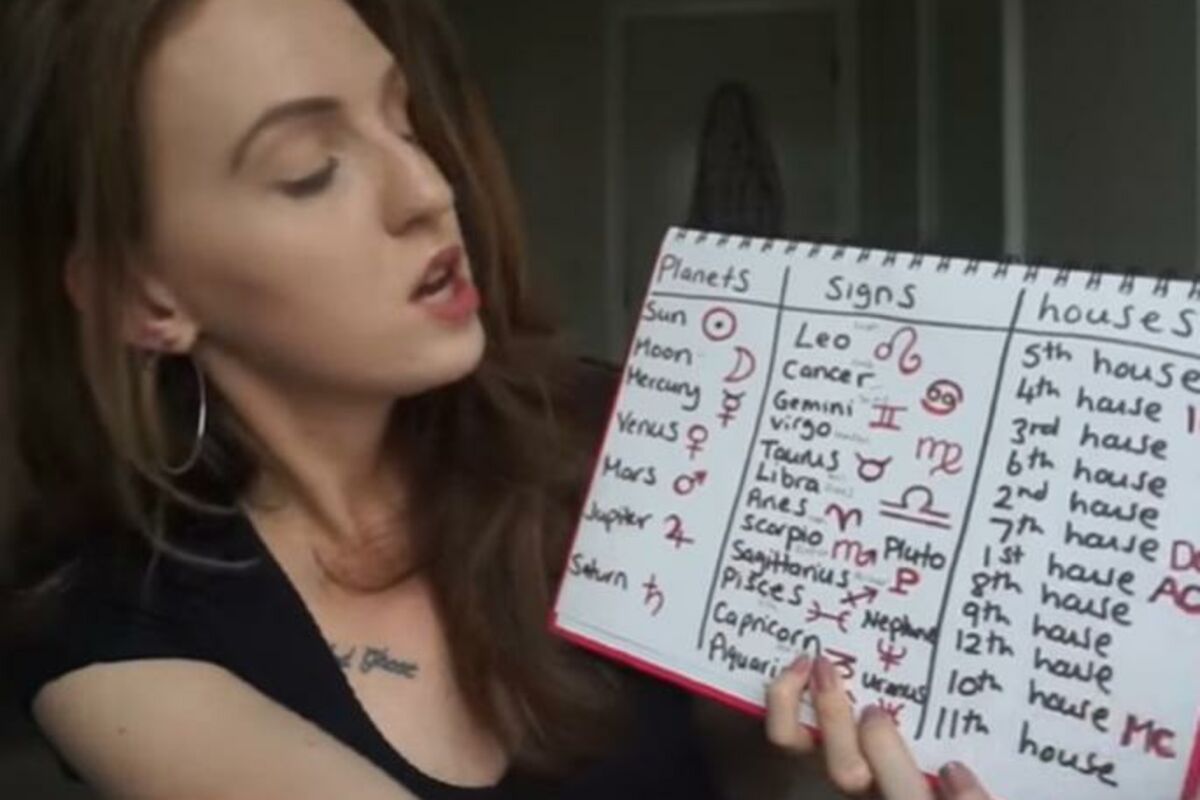 Planets Signs houses
Sun ☉ Leo ♌ 5th house
Moon ☽ Cancer ♋ 4th house
Mercury ☿ Gemini ♊ 3rd house
virgo ♍ 6th house
Venus ♀ Taurus ♉ 2nd house
Libra ♎ 7th house
Mars ♂ Aries ♈ 1st house AC
Jupiter ♃ Scorpio ♏ Pluto ♇ 8th house
Sagittarius ♐ 9th house
Saturn ♄ Pisces ♓ Neptune ♆ 12th house
Capricorn 10th house MC
Aquari uranus 11th house